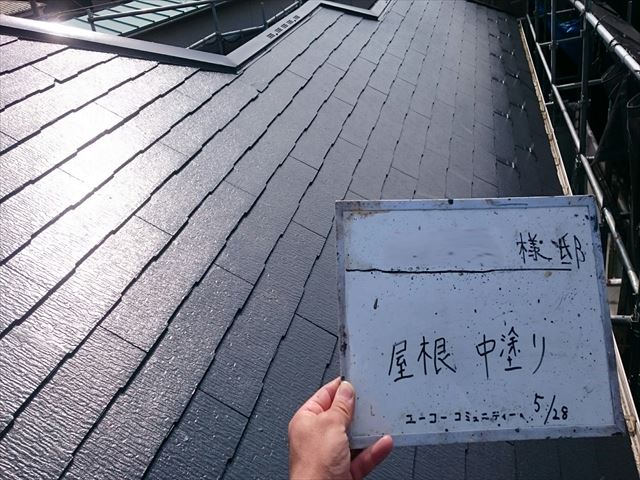 様邸
屋根 中塗り
ユーコーコミュニティー 5/28